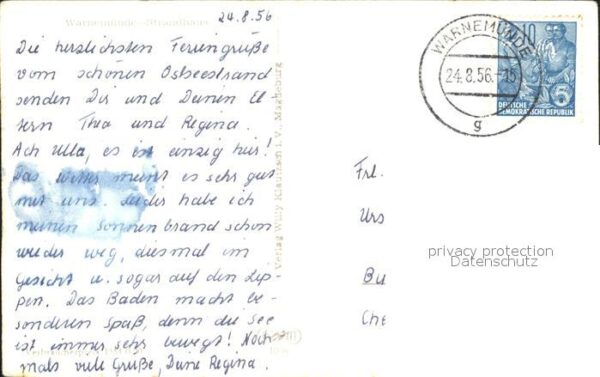 Warnemünde - Strandhaus
24.8.56
Die herzlichsten Feriengrüße
vom schönen Ostseestrand
senden Dir und Deinen El-
tern Thea und Regina.
Ach Ulla, es ist einzig hier!
Das Wetter meint es sehr gut
mit uns. Leider habe ich
meinen Sonnenbrand schon
wieder weg, diesmal im
Gesicht u. sogar auf den Lip-
pen. Das Baden macht be-
sonderen Spaß, denn die See
ist immer sehr bewegt! Noch-
mals viele Grüße, Deine Regina.
Verlag Willy Klautzsch i. V., Magdeburg
WARNEMÜNDE
24.8.56.-15
g
10
5
DEUTSCHE
DEMOKRATISCHE REPUBLIK
Frl.
Urs
Bu
Che
privacy protection
Datenschutz